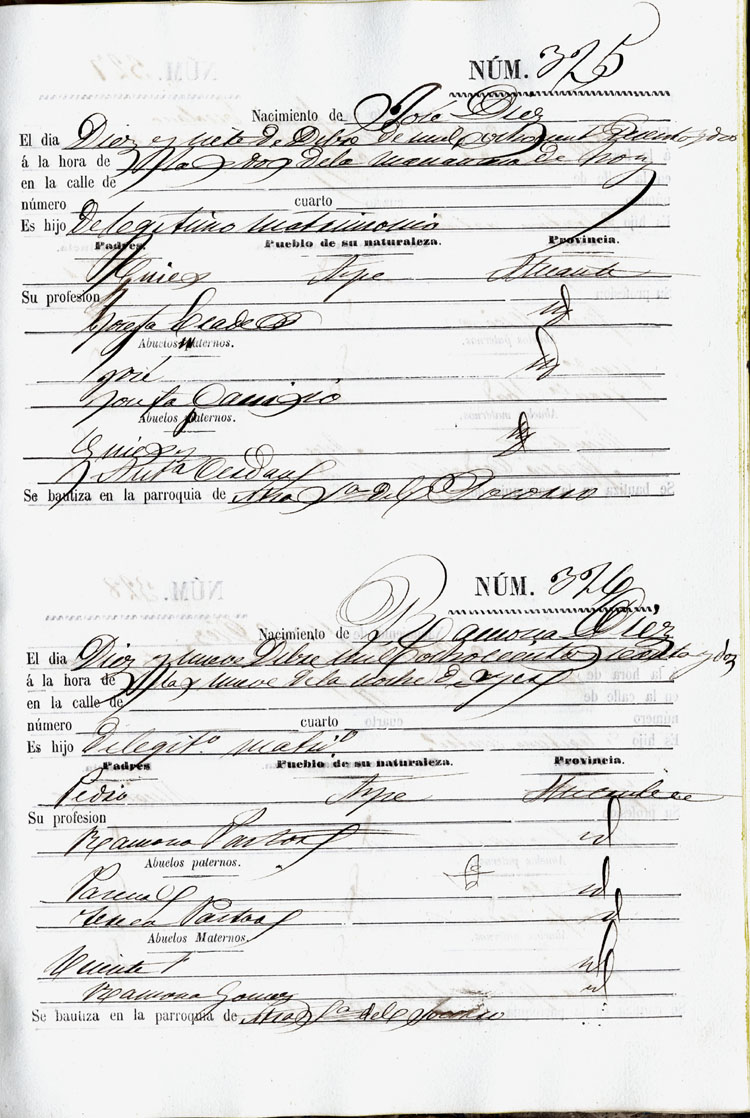 NÚM. 325
Nacimiento de José Diez
El dia Diez y siete de Dibre de mil ochocient y dos
á la hora de A las dos de la manana de hoy
en la calle de
número cuarto
Es hijo De legitimo matrimonio
Padres. Pueblo de su naturaleza. Provincia.
Aspe Alicante
Su profesion
Josefa id
Abuelos paternos.
José id
Josefa
Abuelos paternos.
id
Se bautiza en la parroquia de Ntra Sra del Socorro
NÚM. 326
Nacimiento de Ramona Diez
El dia Diez y nueve Dibre mil ochocientos y dos
á la hora de A las nueve de la noche de ayer
en la calle de
número cuarto
Es hijo de legito. matrio.
Padres Pueblo de su naturaleza. Provincia.
Pedro Aspe Alicante
Su profesion
Ramona Pastor id
Abuelos paternos.
Pascual id
Teresa Pastor id
Abuelos Maternos.
Vicente id
Ramona Gomez id
Se bautiza en la parroquia de Ntra Sra del Socorro